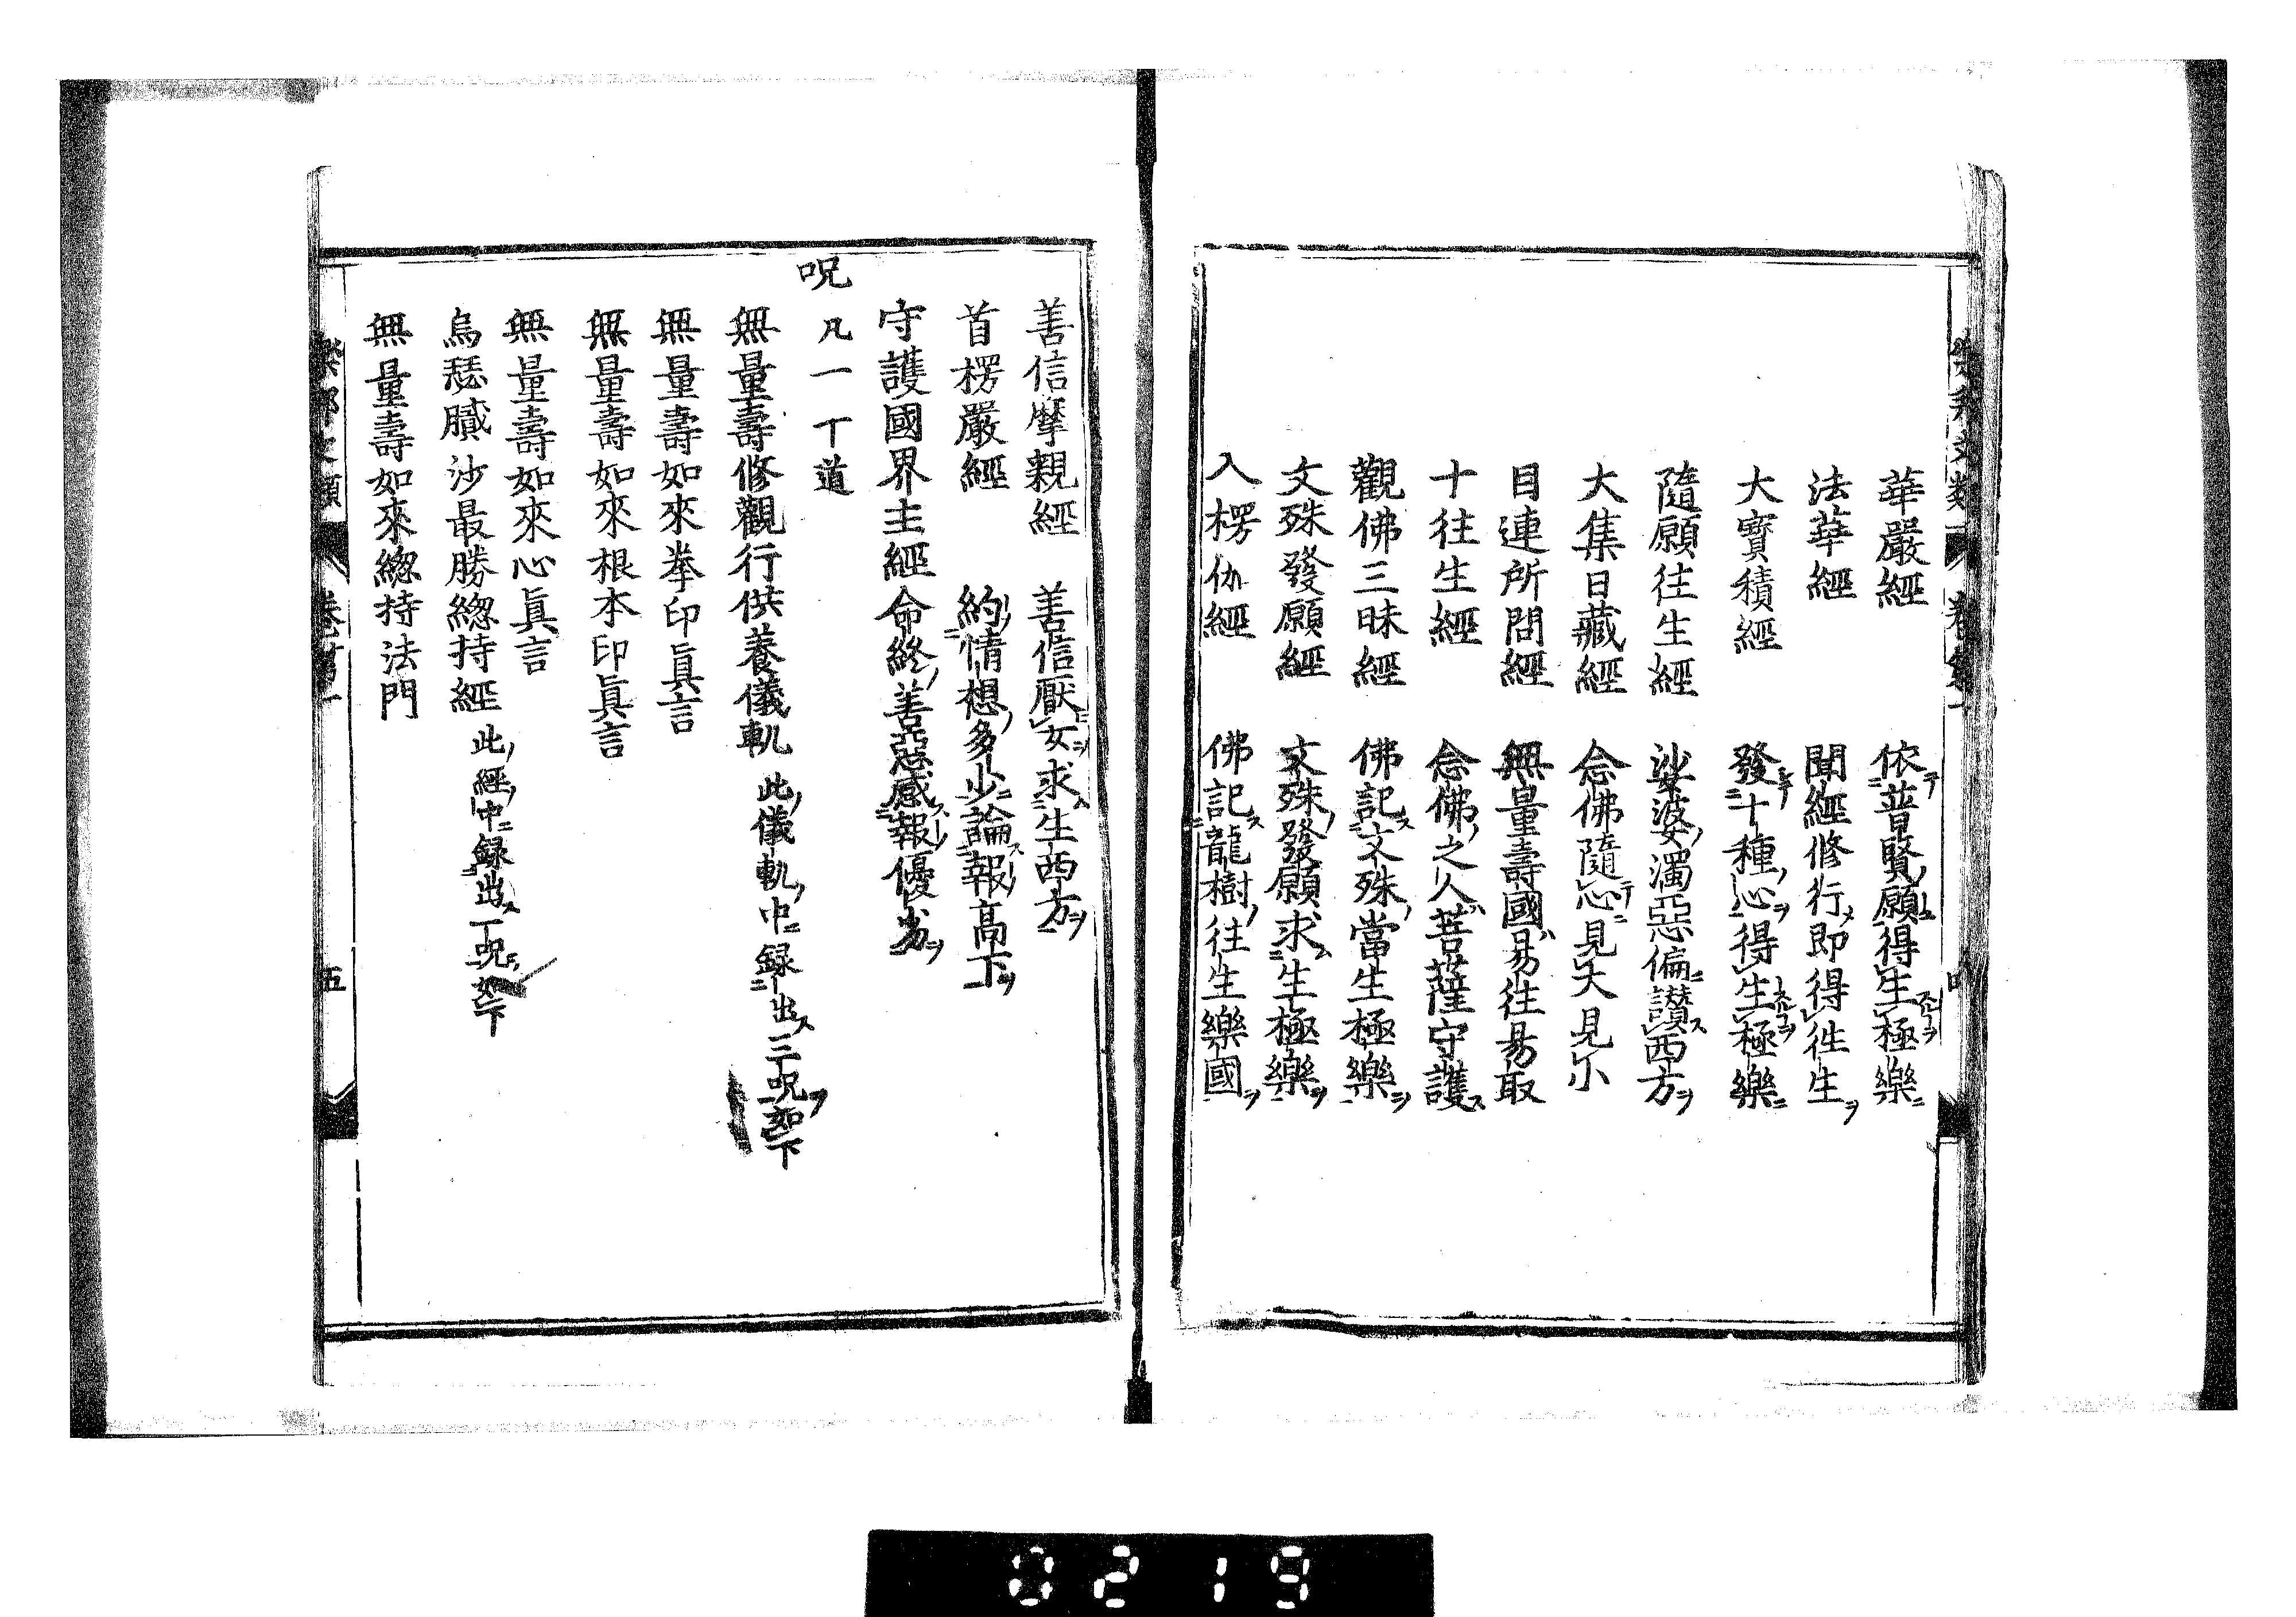 華嚴經　依普賢願得生極樂
法華經　聞經修行即得往生
大寳積經　發十種心得生極樂
隨願往生經　娑婆濁惡偏讃西方
大集日藏經　念佛隨心見大見小
目連所問經　無量壽國易往易取
十往生經　念佛之人菩薩守護
觀佛三昧經　佛記文殊當生極樂
文殊發願經　文殊發願求生極樂
入楞伽經　佛記龍樹往生樂國
善信摩親經　善信厭女求生西方
首楞嚴經　約情想多少論報高下
守護國界主經　命終善惡感報優劣
呪凡一丁道
無量壽修觀行供養儀軌　此儀軌中録出三呪如下
無量壽如來拳印眞言
無量壽如來根本印眞言
無量壽如來心眞言
烏瑟膩沙最勝總持經　此經中録出一呪如下
無量壽如來總持法門
樂邦文類　卷第一　五
0219